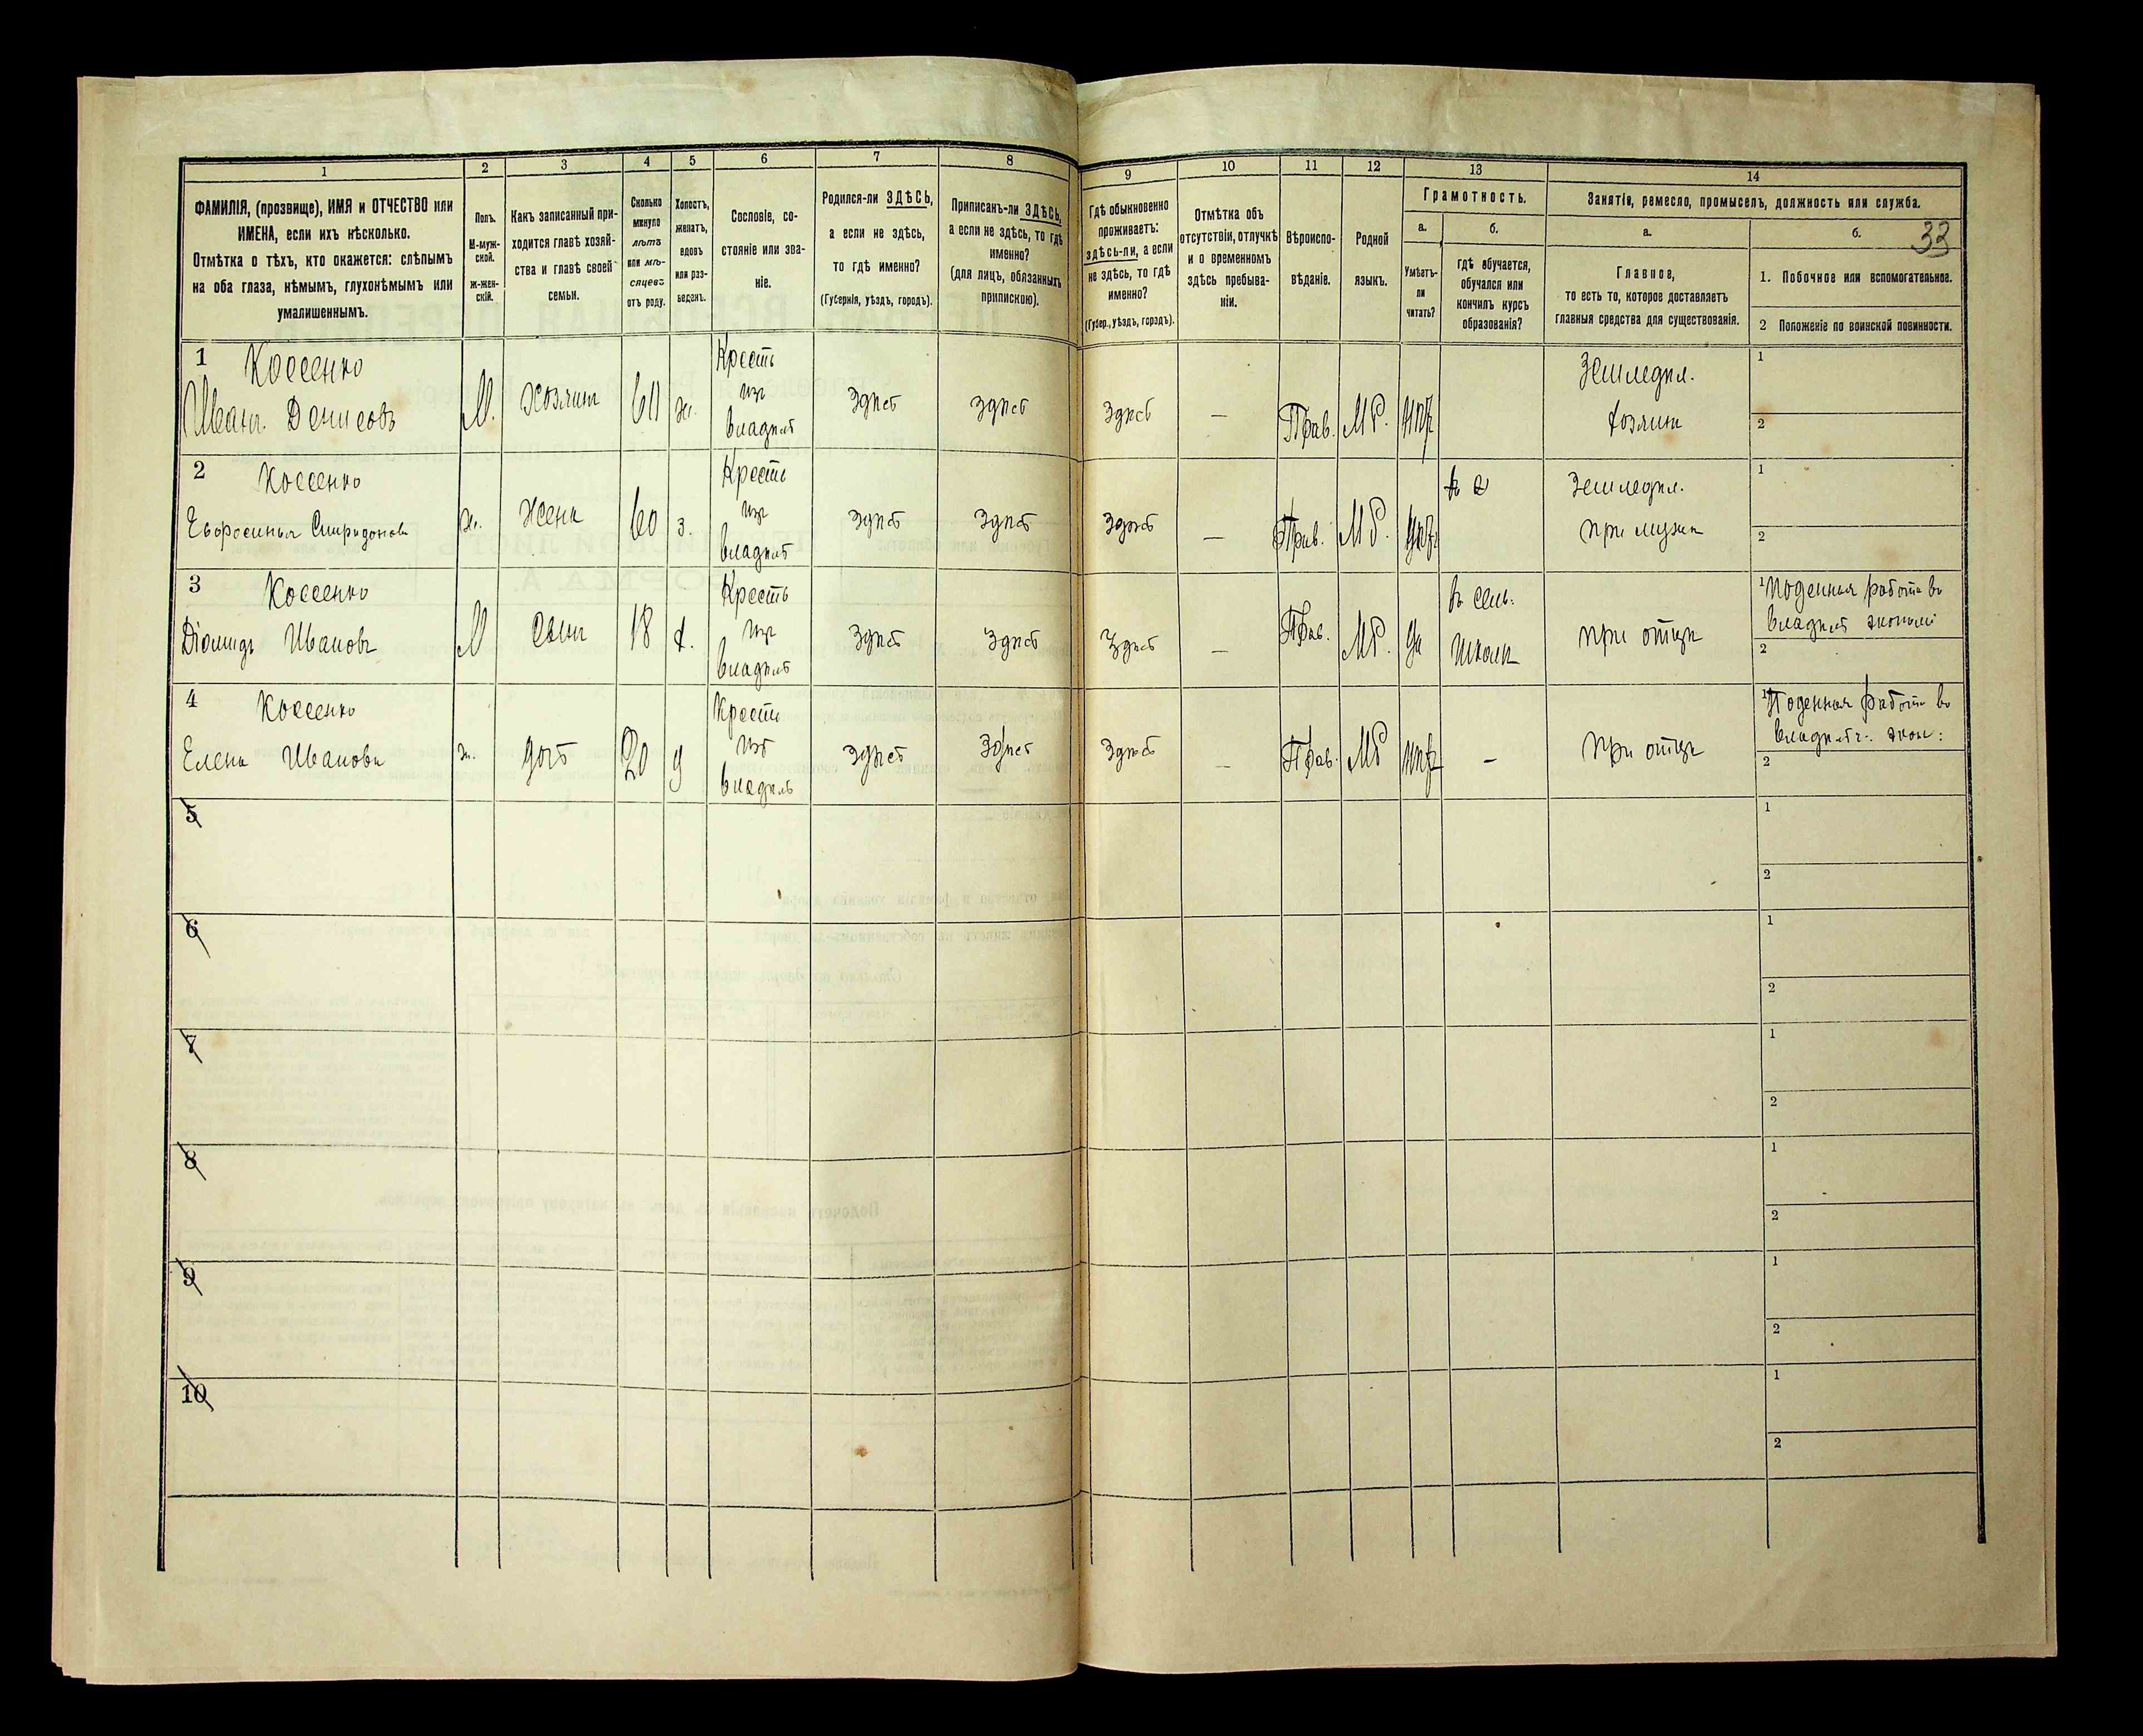 1
2
3
4
5
6
7
8
ФАМИЛІЯ, (прозвище), ИМЯ и ОТЧЕСТВО или
ИМЕНА, если ихъ нѣсколько.
Отмѣтка о тѣхъ, кто окажется: слѣпымъ
на оба глаза, нѣмымъ, глухонѣмымъ или
умалишеннымъ.
Полъ.
М-муж-
ской.
ж-жен-
скій.
Какъ записанный при-
ходится главѣ хозяй-
ства и главѣ своей
семьи.
Сколько
минуло
лѣтъ
или мѣ-
сяцевъ
отъ роду.
Холостъ,
женатъ,
вдовъ
или раз-
веденъ.
Сословіе, со-
стояніе или зва-
ніе.
Родился-ли ЗДѢСЬ,
а если не здѣсь,
то гдѣ именно?
(Губернія, уѣздъ, городъ).
Приписанъ-ли ЗДѢСЬ,
а если не здѣсь, то гдѣ
именно?
(для лицъ, обязанныхъ
припискою).
9
10
11
12
13
14
Гдѣ обыкновенно
проживаетъ:
здѣсь-ли, а если
не здѣсь, то гдѣ
именно?
(Губер., уѣздъ, городъ).
Отмѣтка объ
отсутствіи, отлучкѣ
и о временномъ
здѣсь пребыва-
ніи.
Вѣроиспо-
вѣданіе.
Родной
языкъ.
Грамотность.
а.
б.
Умѣетъ-
ли
читать?
гдѣ обучается,
обучался или
кончилъ курсъ
образованія?
Занятіе, ремесло, промыселъ, должность или служба.
а.
б.
33
Главное,
то есть то, которое доставляетъ
главныя средства для существованія.
1. Побочное или вспомогательное.
2 Положеніе по воинской повинности.
1 Коссенко
Иванъ Денисовъ
М.
Хозяинъ
60
ж.
Кресть
изъ
владѣл
здѣсь
здѣсь
здѣсь
—
Прав.
МР.
Земледѣл.
хозяинъ
1
2
2 Коссенко
Евфросинья Спиридонов
ж.
Жена
60
з.
Кресть
изъ
владѣл
здѣсь
здѣсь
здѣсь
—
Прав.
МР.
Земледѣл.
при мужѣ
1
2
3 Коссенко
Діомидъ Ивановъ
М
Сынъ
18
х.
Кресть
изъ
владѣл
здѣсь
здѣсь
здѣсь
—
Прав.
МР.
да
въ сель.
школѣ
при отцѣ
1 Поденная работа въ
владѣл экономі
2
4 Коссенко
Елена Иванова
ж.
дочь
20
д
Кресть
изъ
владѣль
здѣсь
здѣсь
здѣсь
—
Прав.
МР
—
при отцѣ
1 Поденная работа въ
владѣльч: экон:
2
5
1
2
6
1
2
7
1
2
8
1
2
9
1
2
10
1
2